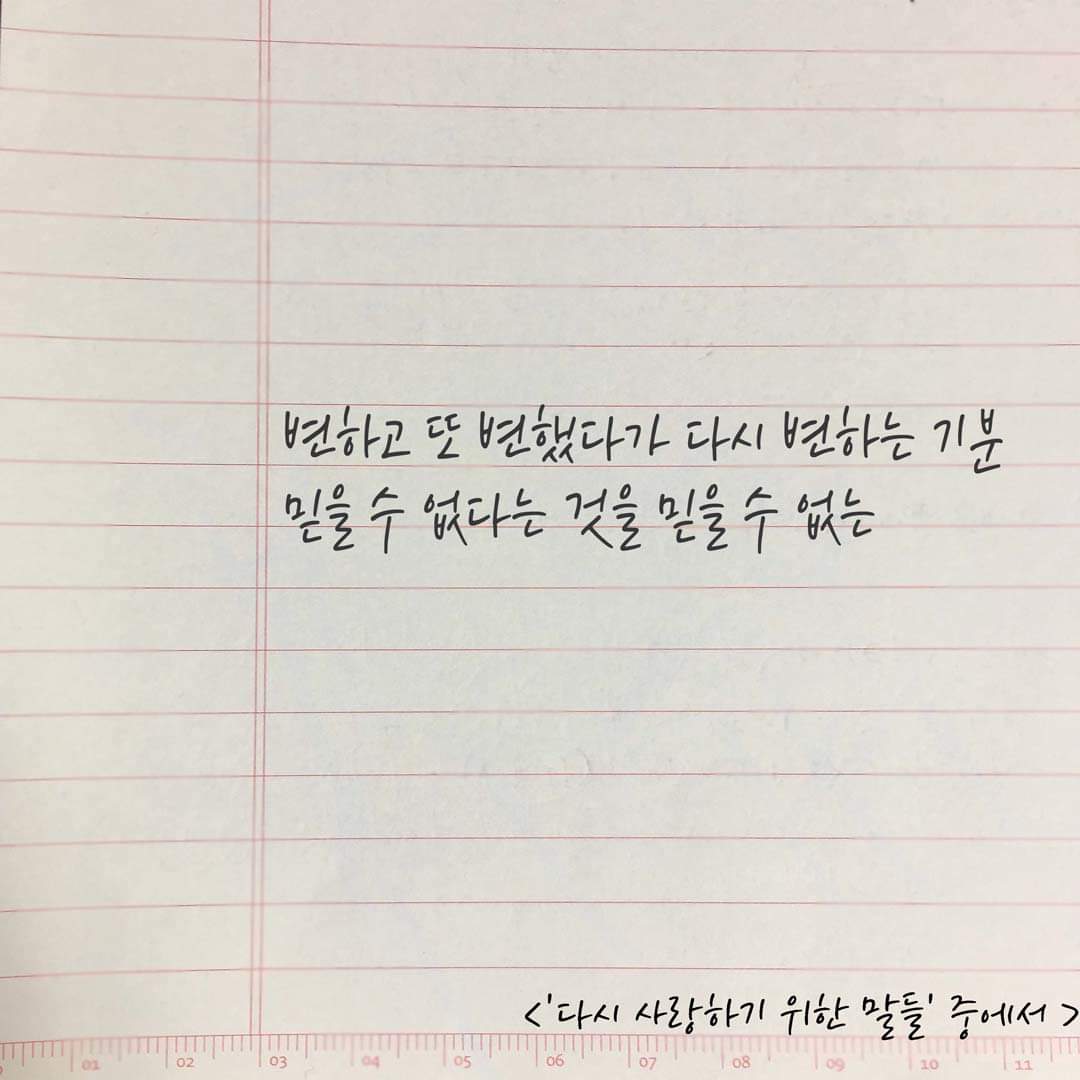 변하고 또 변했다가 다시 변하는 기분
믿을 수 없다는 것을 믿을 수 없는
<'다시 사랑하기 위한 말들' 중에서 >
01 02 03 04 05 06 07 08 09 10 11